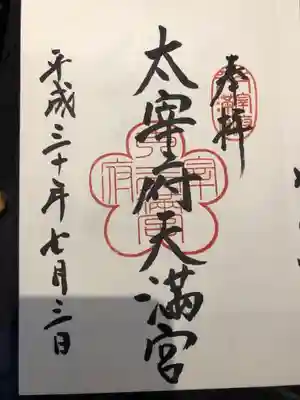 奉拝
太宰府天満宮
平成三十年七月三日